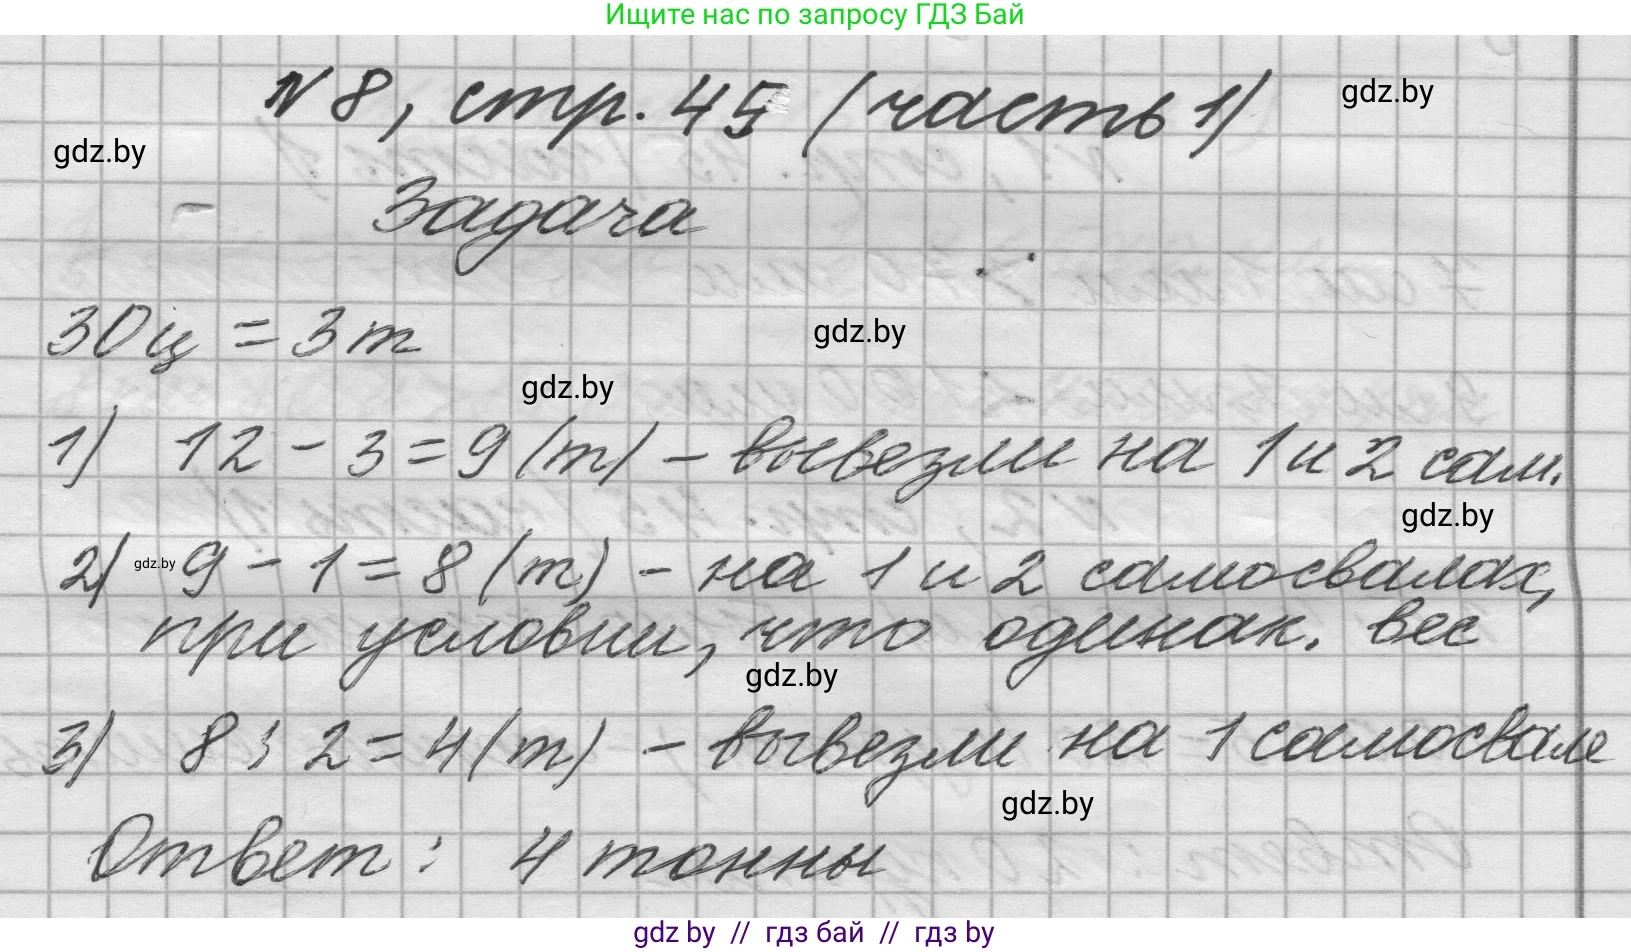 Ищите нас по запросу ГДЗ Бай
N 8, стр. 45 (часть 1)
gdz.by
gdz.by
Задача
30ц = 3 т
gdz.by
gdz.by
1) 12 - 3 = 9 (т) - вывезли на 1 и 2 сам.
gdz.by
2) gdz.by 9 - 1 = 8 (т) - на 1 и 2 самосвалах,
при условии, что одинак. вес
gdz.by
3) 8 : 2 = 4 (т) - вывезли на 1 самосвале
gdz.by
Ответ: 4 тонны
gdz by // гдз бай // гдз by